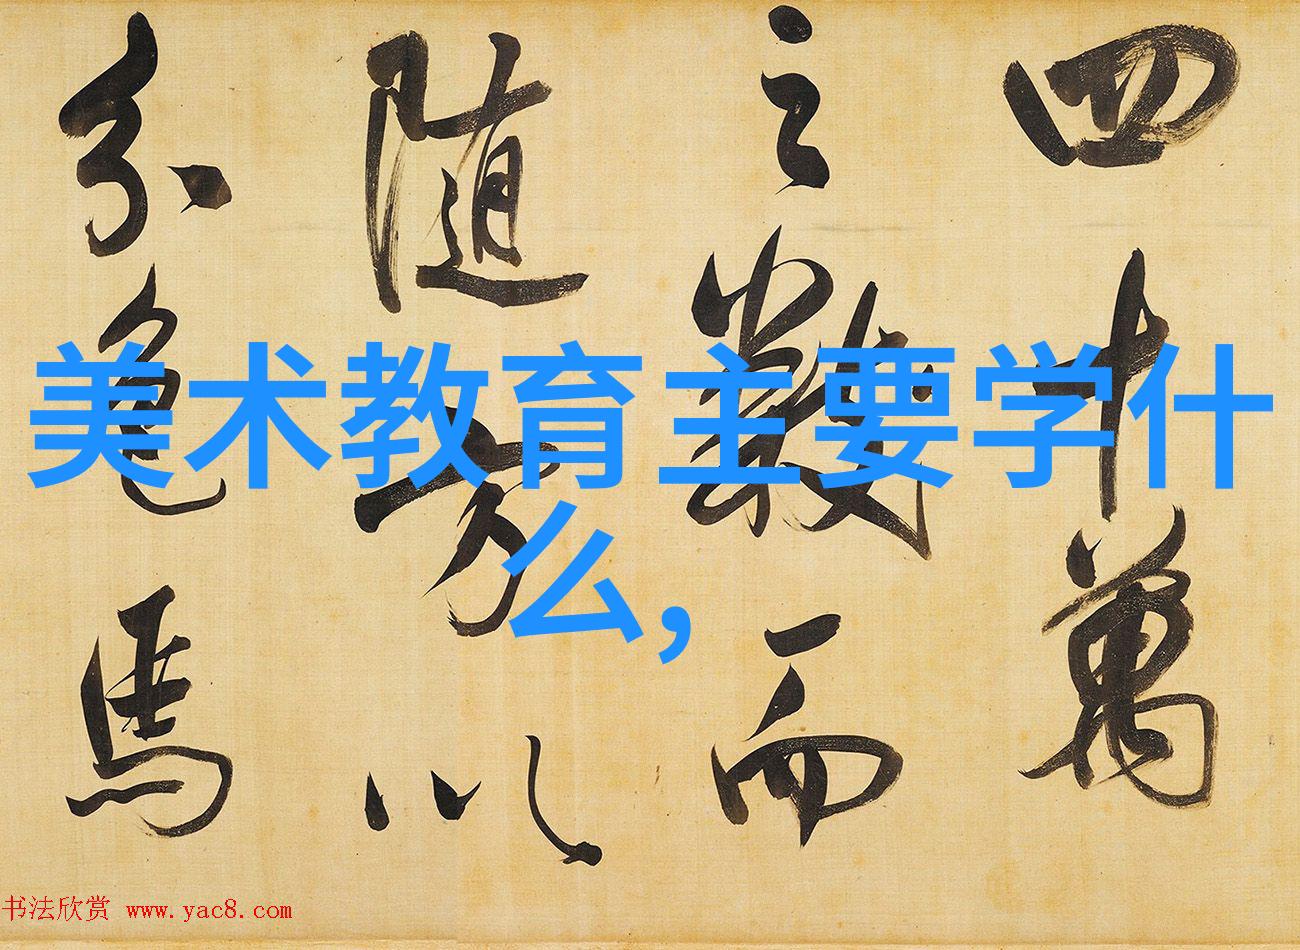 四十萬
之數而
随方以
分色馬
美术教育主要学什
么,
书法欣赏 www.yac8.com